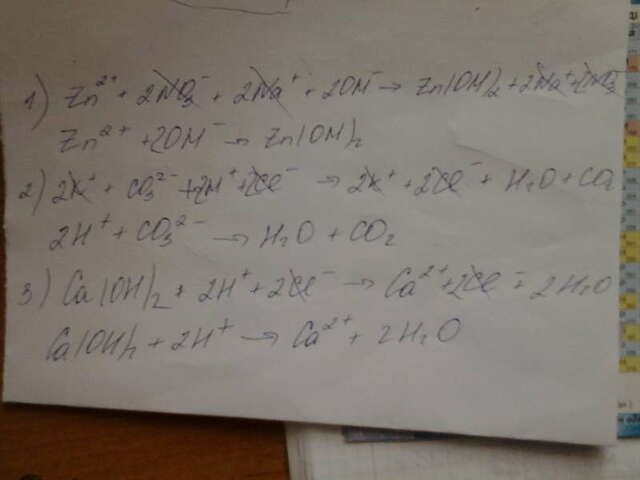 1) Zn²⁺ + 2NO₃⁻ + 2Na⁺ + 2OH⁻ → Zn(OH)₂ + 2Na⁺ + 2NO₃⁻
Zn²⁺ + 2OH⁻ → Zn(OH)₂
2) 2K⁺ + CO₃²⁻ + 2H⁺ + 2Cl⁻ → 2K⁺ + 2Cl⁻ + H₂O + CO₂
2H⁺ + CO₃²⁻ → H₂O + CO₂
3) Ca(OH)₂ + 2H⁺ + 2Cl⁻ → Ca²⁺ + 2Cl⁻ + 2H₂O
Ca(OH)₂ + 2H⁺ → Ca²⁺ + 2H₂O